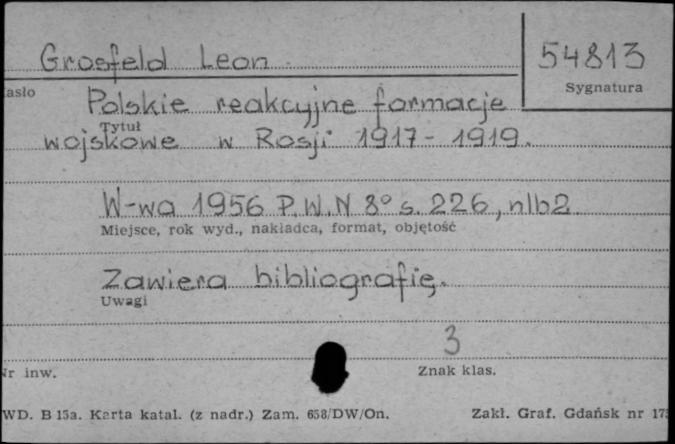 Grosfeld Leon
54813
Sygnatura
asło
Polskie reakcyjne formacje
Tytuł
wojskowe w Rosji 1917-1919.
W-wa 1956 P.W.N 8° s. 226, nlb2
Miejsce, rok wyd., nakładca, format, objętość
Zawiera bibliografię.
Uwagi
3
Nr inw.
Znak klas.
WD. B 15a. Karta katal. (z nadr.) Zam. 658/DW/On.
Zakł. Graf. Gdańsk nr 175